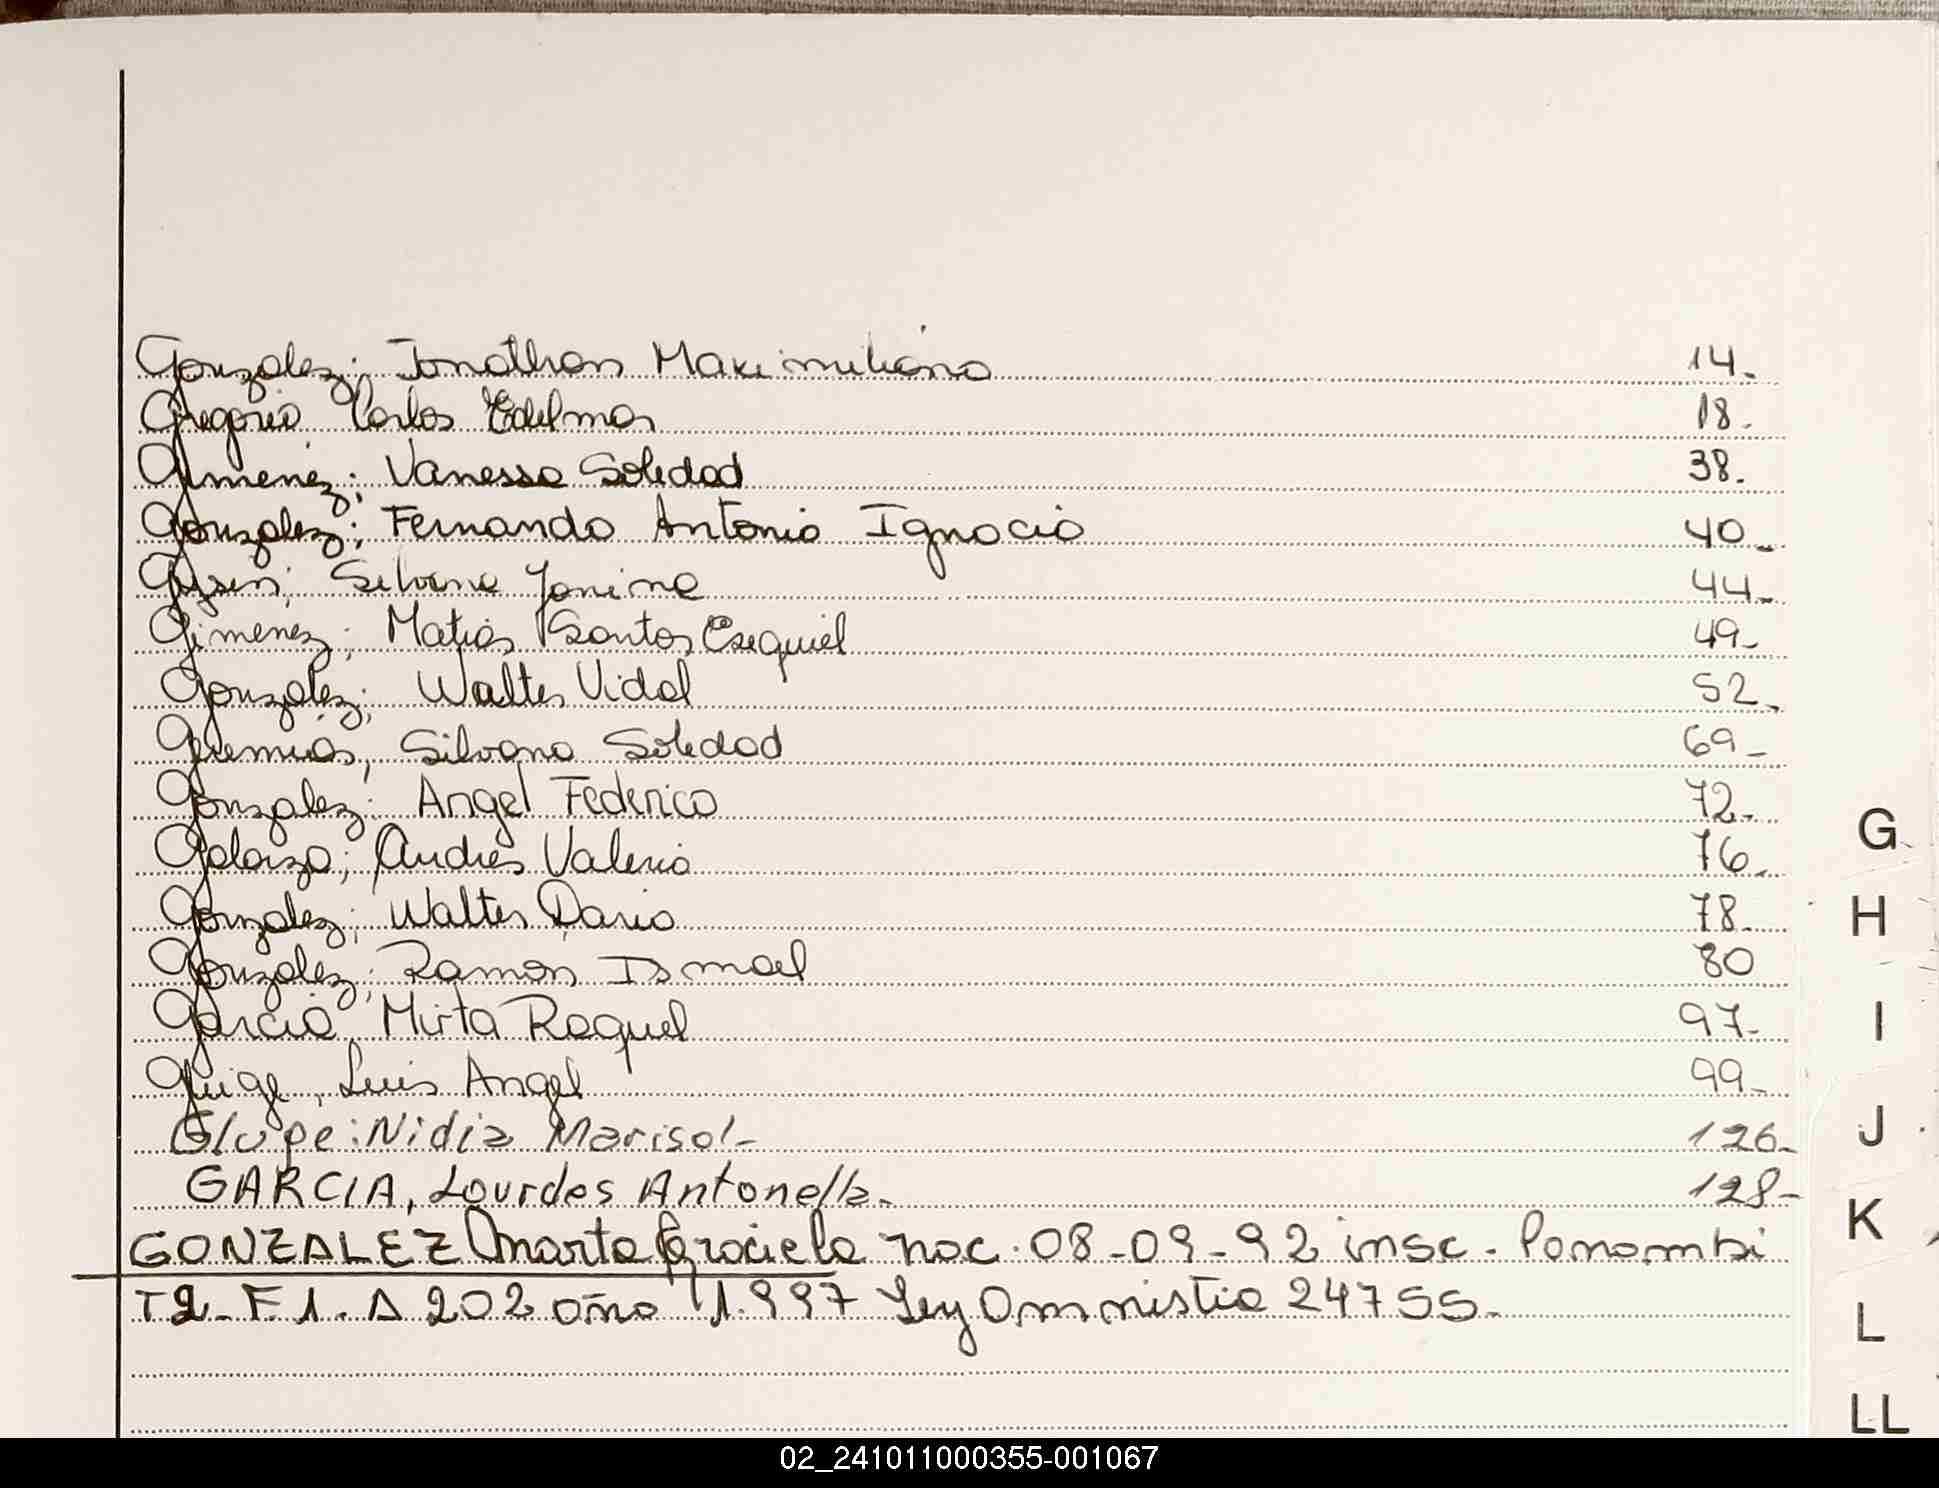 Gonzalez; Jonathan Maximiliano 14.
Gregorio Carlos Edelmar 18.
Gimenez; Vanessa Soledad 38.
Gonzalez; Fernando Antonio Ignacio 40_
Silvana Yanina 44_
Gimenez; Matias Santos Esequiel 49_
Gonzalez; Walter Vidal 52_
Silvana Soledad 69_
Gonzalez: Angel Federico 72.
Galarza; Andres Valerio 76.
Gonzalez; Walter Dario 78.
Gonzalez; Ramon Ismael 80
Garcia Mirta Raquel 97_
Luis Angel 99_
Glupe: Nidia Marisol_ 126_
GARCIA, Lourdes Antonella. 128_
GONZALEZ Marta Graciela nac. 08-09-92 insc. Panambi
T2_F.1. A 202 año 1.997 Ley Amnistia 24755.
G
H
I
J
K
L
LL
02_241011000355-001067